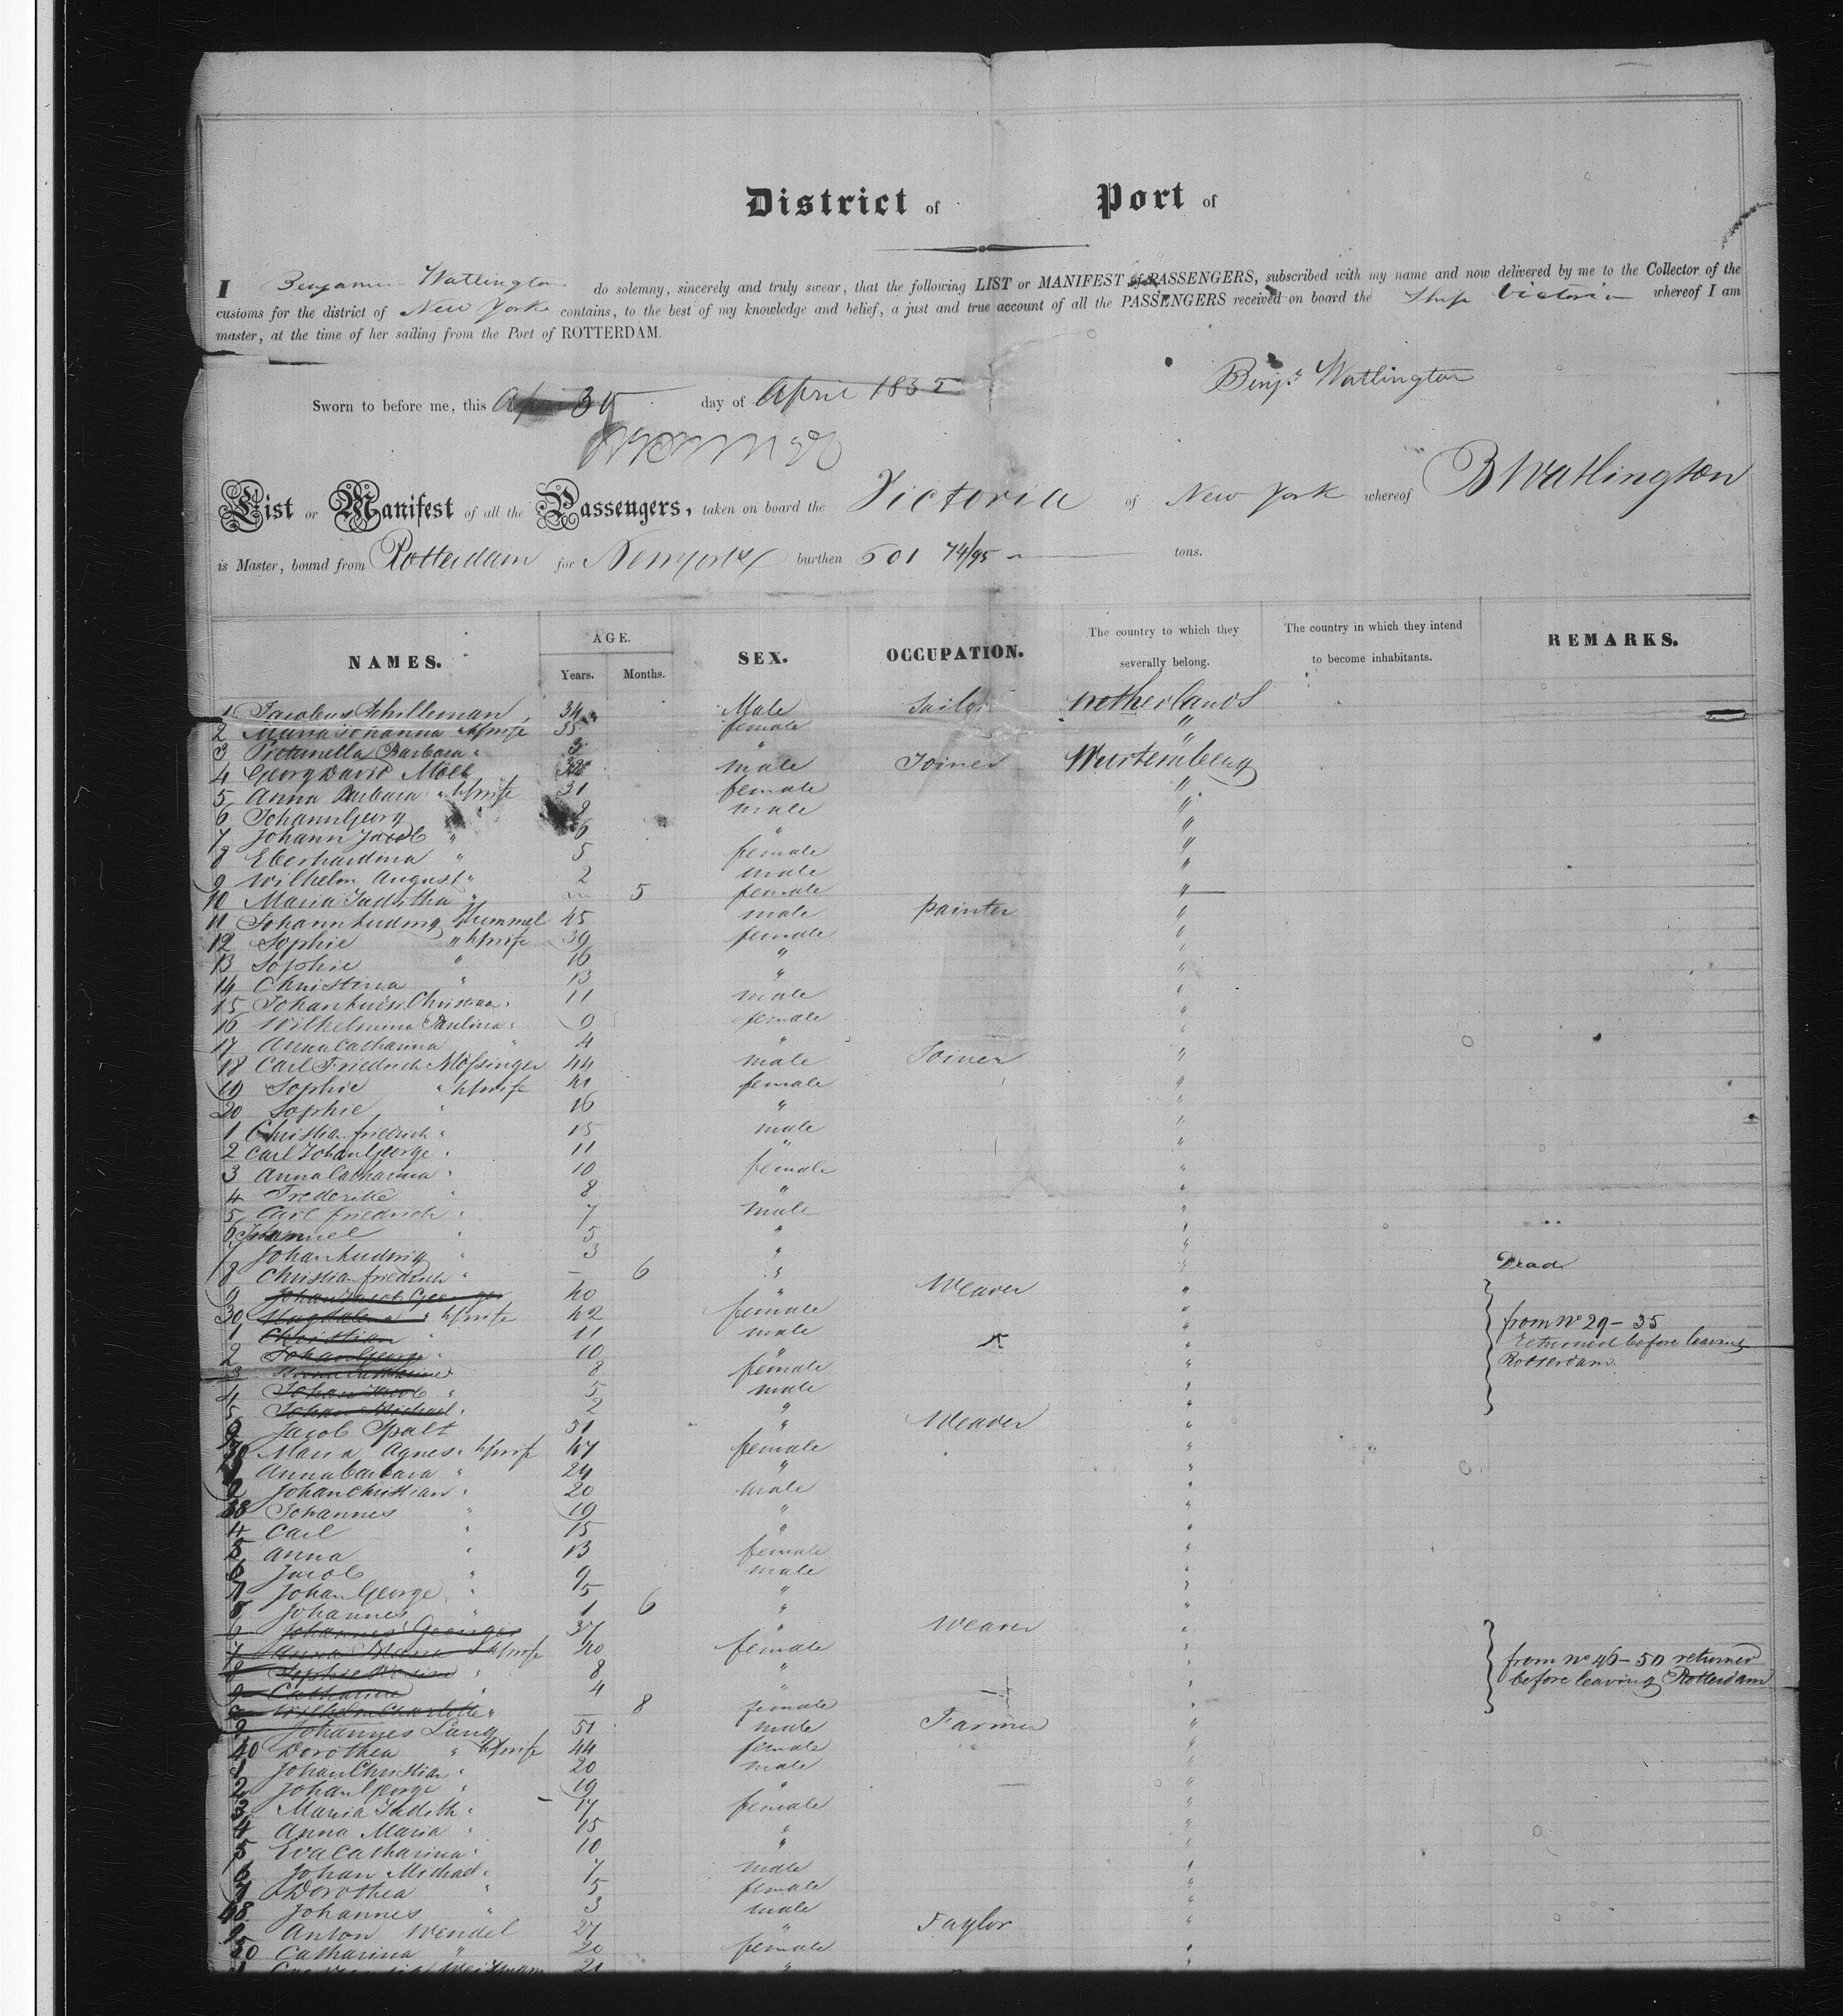 District of Port of
I Benjamin Watlington do solemny, sincerely and truly swear, that the following LIST or MANIFEST of PASSENGERS, subscribed with my name and now delivered by me to the Collector of the
cusioms for the district of New York contains, to the best of my knowledge and belief, a just and true account of all the PASSENGERS received on board the Ship Victoria whereof I am
master, at the time of her sailing from the Port of ROTTERDAM.
Benjn Watlington
Sworn to before me, this 30 day of April 1835
List or Manifest of all the Passengers, taken on board the Victoria of New York whereof B Watlington
is Master, bound from Rotterdam for Newyork burthen 601 74/95 tons.
NAMES. AGE. Years. Months. SEX. OCCUPATION. The country to which they severally belong. The country in which they intend to become inhabitants. REMARKS.
1 Jacobus Schilleman 34 Male Sailor netherlands
2 Maria Johanna " hs wife 35 female "
3 Barbara " 3 " "
4 Georg David Moll male Joiner Wurtemberg
5 Anna Barbara " hs wife 31 female "
6 Johann Georg " 8 male "
7 Johann Jacob " 6 " "
8 Eberhardina " 5 female "
9 Wilhelm August " 2 male "
10 Maria Juditha " 5 female "
11 Johann Ludwig Hummel 45 male painter "
12 Sophie " hs wife 39 female "
13 Sophie " 16 " "
14 Christina " 13 " "
15 Johan Ludw. Christian " 11 male "
16 Wilhelmina Paulina " 9 female "
17 Anna Catharina " 4 " "
18 Carl Friedrich Mössinger 44 male Joiner "
19 Sophie " hs wife 41 female "
20 Sophie " 16 " "
1 Christian friedrich " 15 male "
2 Carl Johan George " 11 " "
3 Anna Catharina " 10 female "
4 Frederike " 8 " "
5 Carl friedrich " 7 male "
6 " 5 " "
7 Johan Ludwig " 3 " "
8 Christian friedrich " — 6 " " Dead
9 Johan Jacob Georger 40 " Weaver "
30 Magdalena " hs wife 42 female " from No 29-35
1 Christian " 11 male " returned before leaving
2 Johan George " 10 " " Rotterdam
3 8 female "
4 Johan Jacob " 5 male "
5 Johan Michael " 2 " "
Jacob Spalt 51 " Weaver "
30 Maria Agnes " hs wife 47 female "
Anna Barbara " 24 " "
2 Johan Christian " 20 male "
38 Johannes " 19 " "
4 Carl " 15 " "
5 Anna " 13 female "
6 Jacob " 9 male "
7 Johan George " 5 " "
8 Johannes " 1 6 " "
6 Johannes Georger 37 " Weaver "
7 Anna Maria " hs wife 40 female "
8 Sophie Rosine " 8 " " from No 46-50 returned
9 Catharine " 4 " " before leaving Rotterdam
Wilhelm Charlotte " — 8 female "
9 Johannes Lang 51 male Farmer "
40 Dorothea " hs wife 44 female "
1 Johan Christian " 20 male "
2 Johan George " 19 " "
3 Maria Judith " 17 female "
4 Anna Maria " 15 " "
5 Eva Catharina " 10 " "
6 Johan Michael " 7 male "
7 Dorothea " 5 female "
48 Johannes " 3 male "
9 Anton Wendel 27 " Taylor "
50 Catharina " 20 female "
21 " "